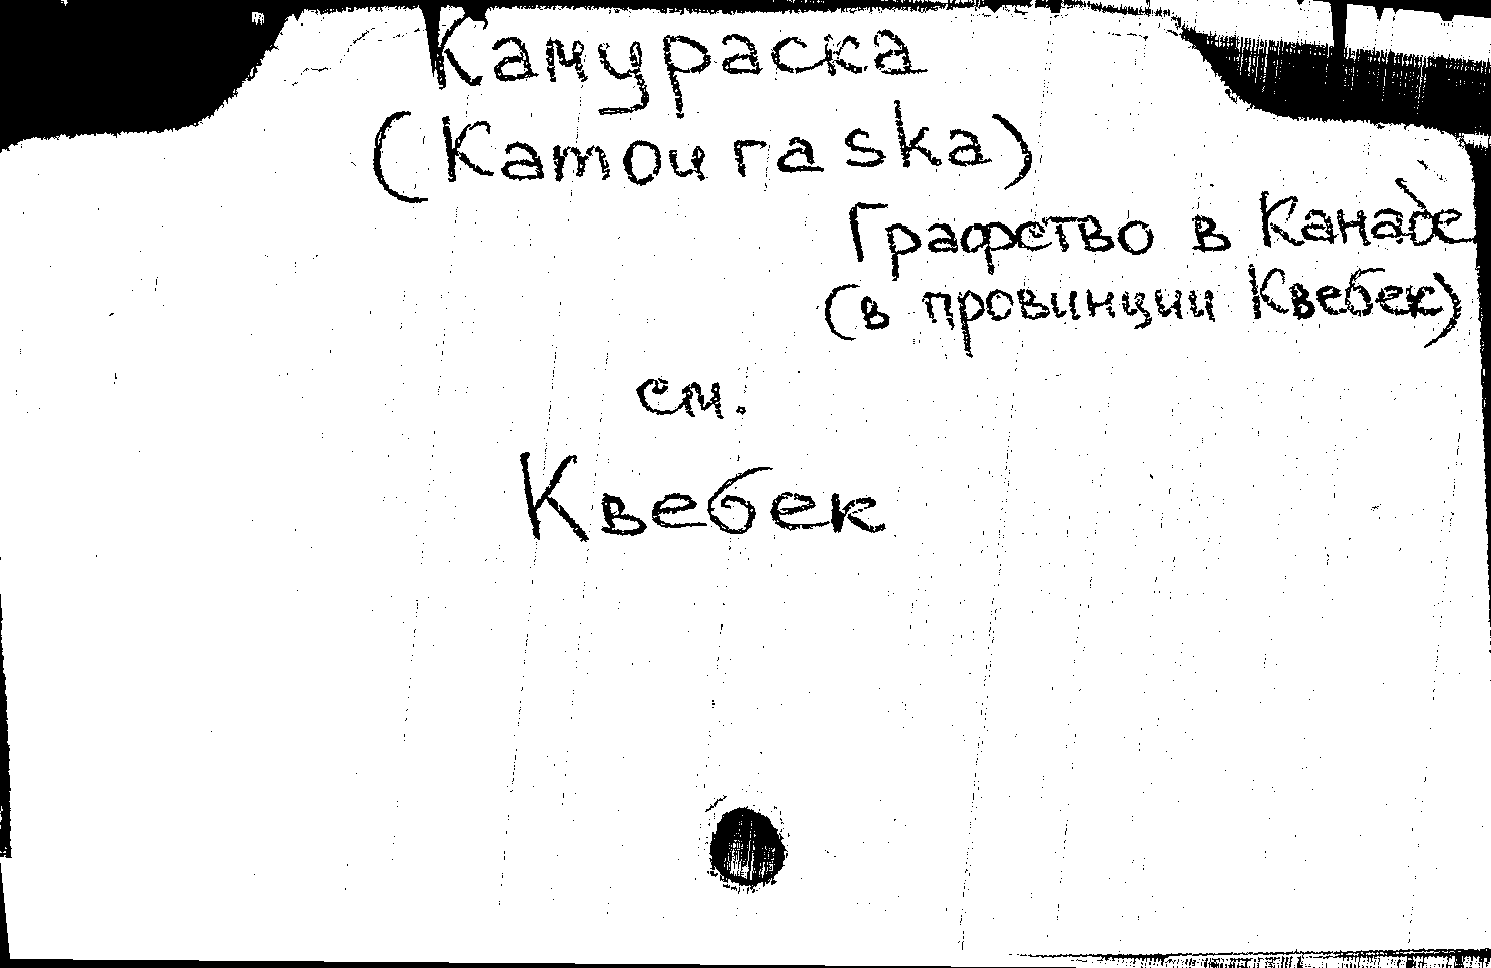 Камураска
(Kamouraska)
Графство в Канаде
(в провинции Квебек)
см.
Квебек